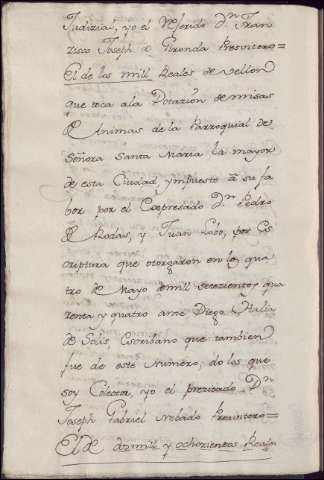 Judizial, yo el referido Dn. Fran
zisco Joseph de Gironda Presvitero=
El de los mill Reales de vellon
que toca a la Dotazion de misas
de Animas de la Parroquial de
Señora Santa Maria la mayor
de esta Ciudad, ympuesto a su fa
bor por el Expresado Dn. Pedro
de Rodas, y Juan Lobo, por Es
criptura que otorgaron en los qua
tro de Mayo de mill setezientos, qua
renta y quatro ante Diego
de Solis, Escribano que tambien
fue de este Numero, de los que
soy Colector, yo el prezitado Dn.
Joseph Gabriel Presvitero=
El de dozmill y ochozientos Reales